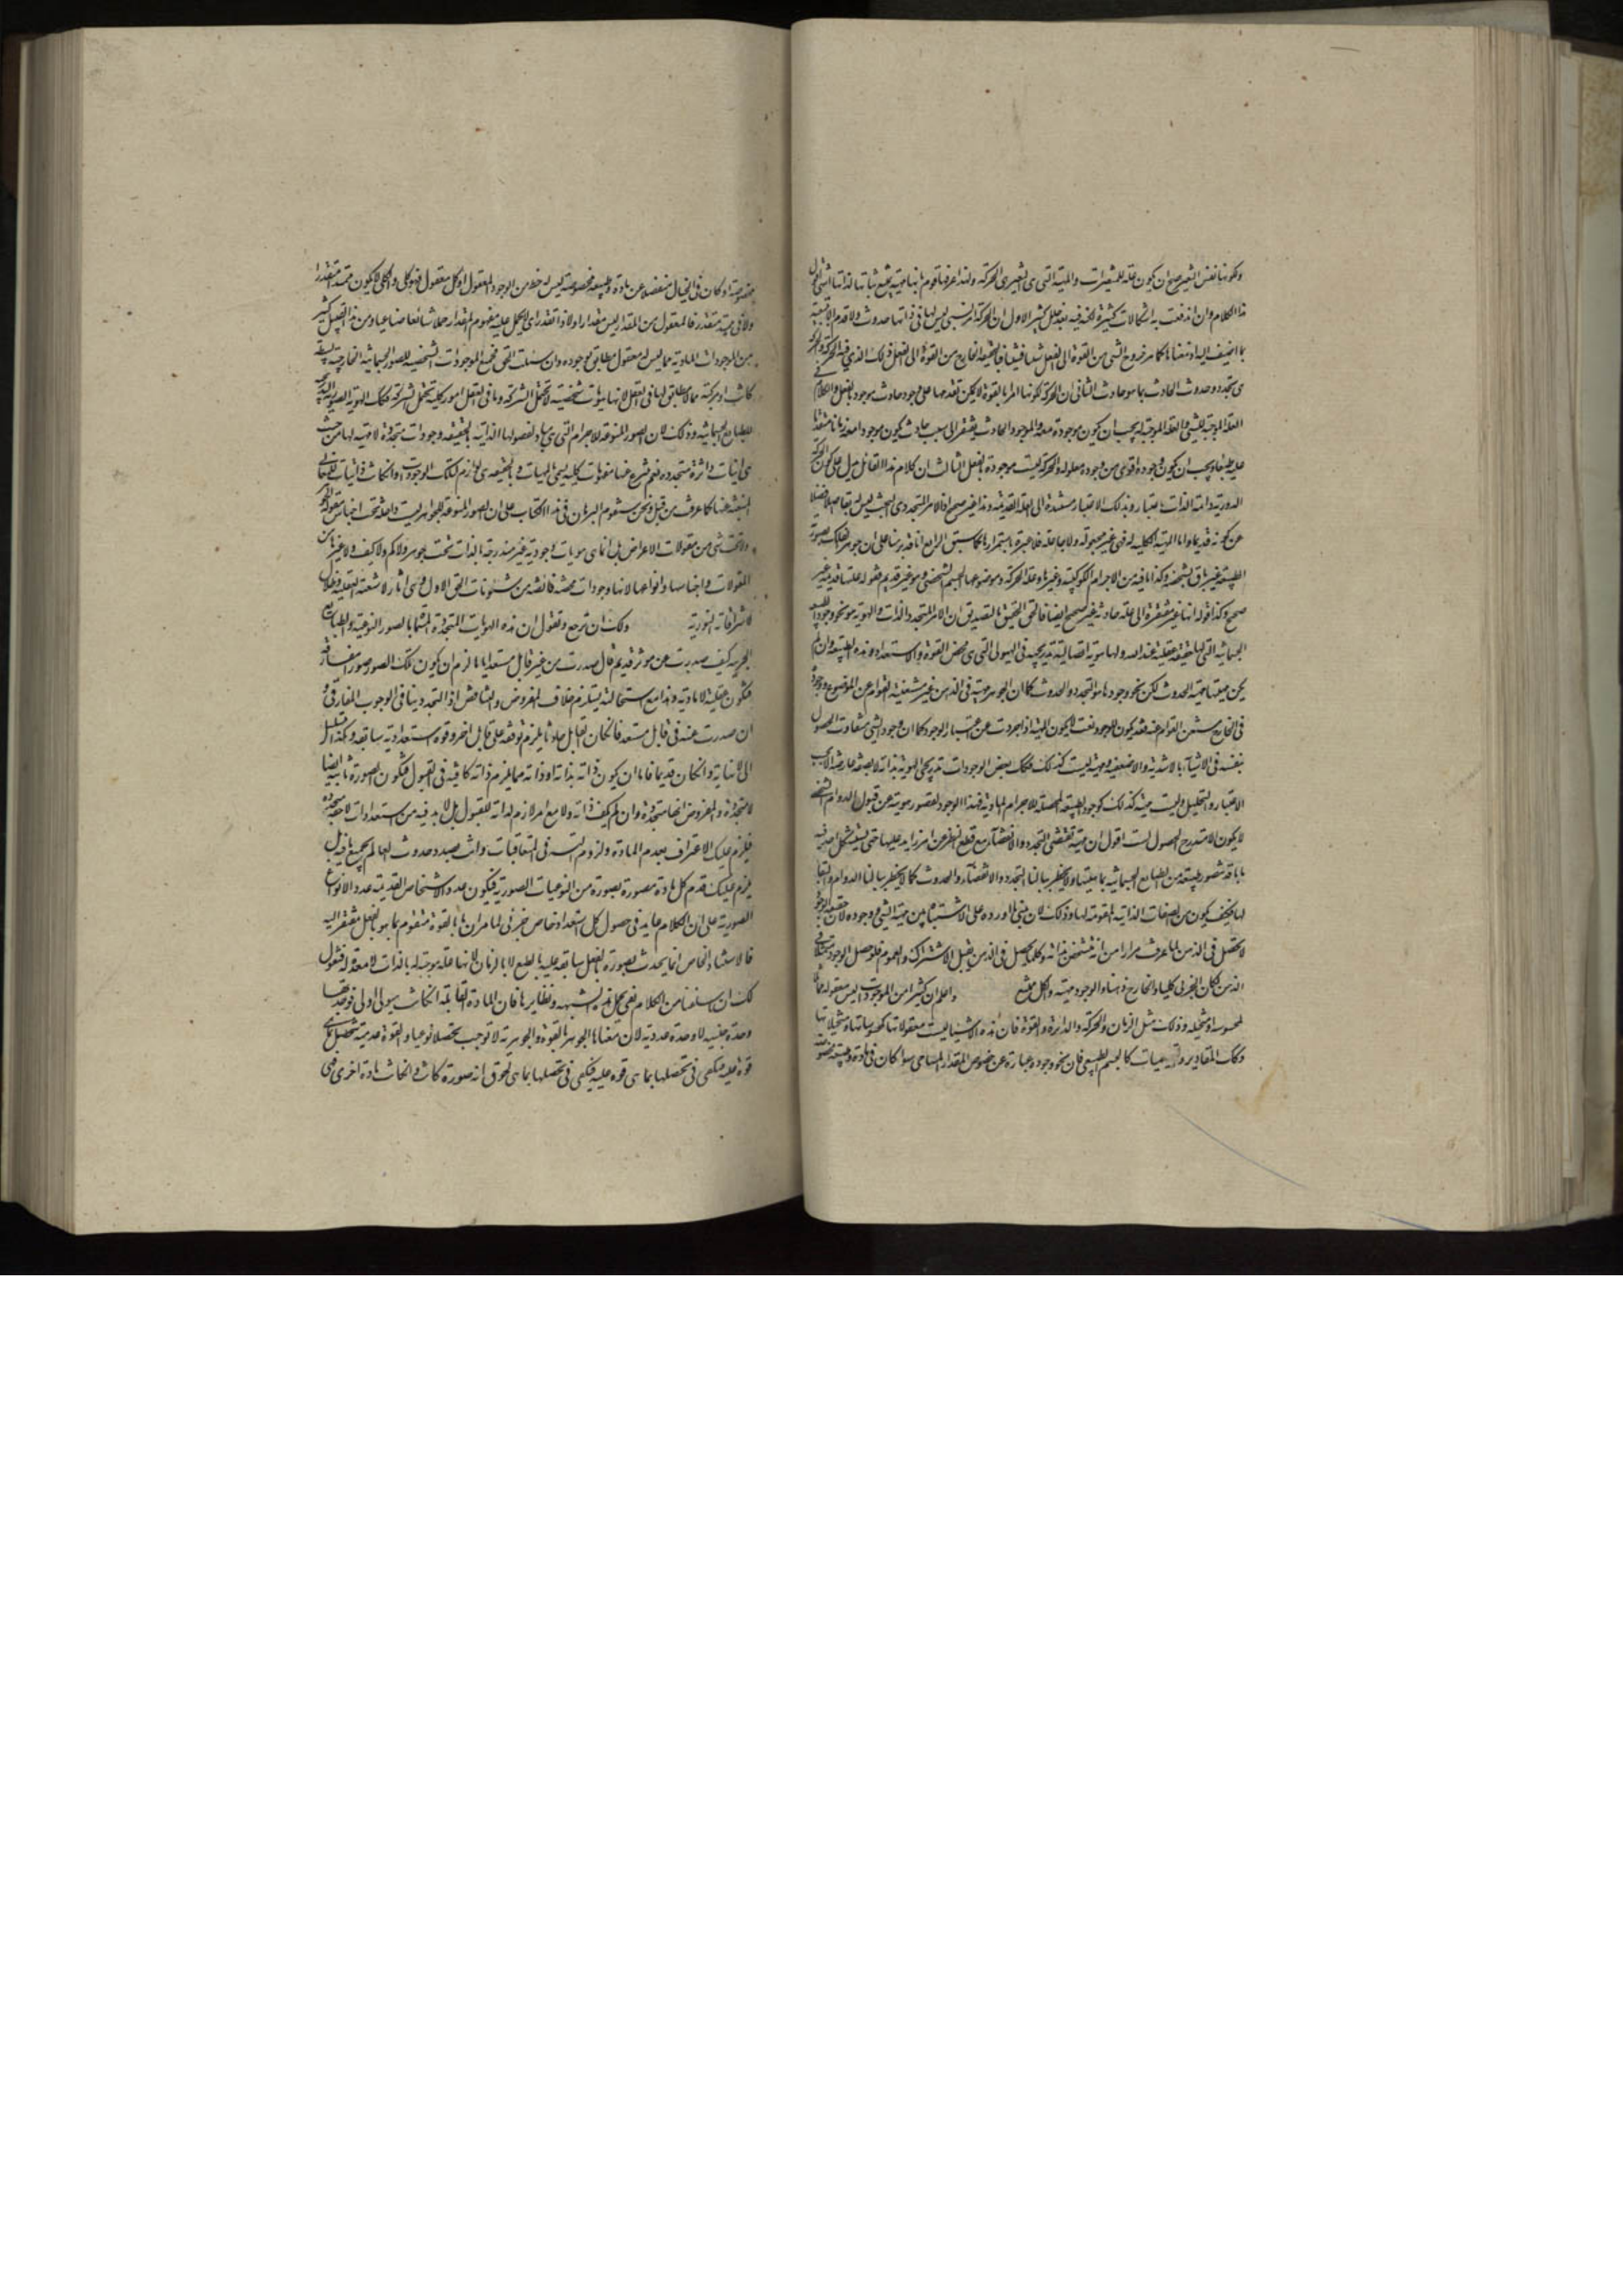 ولكونها نفس التغير صح ان يكون علة للمتغيرات والمهية التي هي التغير هي الحركة ولهذا عرفها قوم بانها مهية يمتنع ثباتها لذاتها انتهى اقول
هذا الكلام وان اندفعت به اشكالات كثيرة لكنه فيه بعد خلل كثير الاول ان الحركة امر نسبي ليس لها في ذاتها حدوث ولا قدم الا بتبعية
ما اضيف اليه اذ معناها كما مر خروج الشي من القوة الى الفعل شيئا فشيئا فبالحقيقة الخارج من القوة الى الفعل ذلك الذي فيه الحركة والحركة
هي تجدده وحدوث الحادث بما هو حادث الثاني ان الحركة لكونها امرا بالقوة لا يمكن تقدمها على وجود حادث موجود بالفعل والكلام في
العلة الموجبة للشي والعلة الموجبة له يجب ان يكون موجودة معه والموجود الحادث يفتقر الى سبب حادث يكون موجودا معه زمانا متقدما
عليه طبعا ويجب ان يكون وجوده اقوى من وجود معلوله والحركة ليست موجودة بالفعل الثالث ان كلام هذا القائل يدل على كون الحركة
الدورية دائمة الذات باعتبار وبذلك الاعتبار مستندة الى العلة القديمة وهذا غير صحيح اذ الامر التجددي البحت ليس له بقاء اصلا فضلا
عن كونه قديما واما المهية الكلية له فهي غير مجعولة ولا جاعلة فلا عبرة باستمرارها كما سبق الرابع انا قد برهنا على ان جوهر الفلك بصورته
الطبيعية غير باق بشخصه وكذا ما فيه من الاجرام الكوكبية وغيرها وعلة الحركة وموضوعها الجسم الشخصي وهو غير قديم فقوله علتها قديمة غير
صحيح وكذا قوله انها غير مفتقرة الى علة حادثة غير صحيح ايضا فالحق الحقيق بالتصديق ان الامر المتجدد الذات والهوية هو نحو وجود الطبيعة
الجسمانية التي لها حقيقة عقلية عند الله ولها هوية اتصالية تدريجية في الهيولى التي هي محض القوة والاستعداد وهذه الطبيعة وان لم
يكن مهيتها مهية الحدوث لكن نحو وجودها هو التجدد والحدوث كما ان الجوهر مهيته في الذهن غير مستغنية القوام عن الموضوع ووجوده
في الخارج مستغن القوام عنه فقد يكون للوجود نعت لا يكون للمهية اذا جردت عن اعتبار الوجود كما ان وجود الشي متفاوت الحصول
بنفسه في الاشياء بالاشدية والاضعفية ومهيته ليست كذلك فكذلك بعض الوجودات تدريجي الهوية بذاته لا بصفة عارضة الا بحسب
الاعتبار والتحليل وليست مهيته كذلك كوجود الطبيعة المحصلة للاجرام المادية فهذا الوجود لقصور هويته عن قبول الدوام الشخصي
لا يكون الا متدرج الحصول لست اقول ان مهيته تقتضي التجدد والانقضاء مع قطع النظر عن امر زايد عليها حتى يستشكل احد فيه
بانا قد نتصور طبيعة من الطبايع الجسمانية بما هيتها ولا يخطر ببالنا التجدد والانقضاء والحدوث كما لا يخطر ببالنا الدوام والبقا
لها فكيف يكون من الصفات الذاتية المقومة لها وذلك لان مبنى ما اورده على الاشتباه بين مهية الشي ووجوده لان حقيقة الوجود
لا تحصل في الذهن لما عرفت مرارا من انه متشخص بذاته وكلما يحصل في الذهن يقبل الاشتراك والعموم فلو حصل الوجود في
الذهن لكان الجزئي كليا والخارج ذهنا والوجود مهية والكل ممتنع واعلم ان كثيرا من الموجودات ليس معقولة كما
المحسوسة او المتخيلة وذلك مثل الزمان والحركة والدايرة والقوة فان هذه الاشيا ليست معقولاتها كمحسوساتها ومتخيلاتها
وكك المقادير والتعليميات كالجسم الطبيعي فان نحو وجوده عبارة عن خصوص المقدار المساحي سوا كان في مادة وطبيعة مخصوصة
مخصوصة او كان في الخيال منفصلا عن مادة وطبيعة مخصوصة ليس له حظ من الوجود المعقول اذ كل معقول فهو كلي والكلي لا يكون ممتدا متقدرا
ولا ذي مهية متقدرة فالمعقول من المقدار ليس مقدارا ولا ذا تقدر اي لا يحمل عليه مفهوم المقدار حملا شائعا صناعيا ومن هذا القبيل كثير
من الموجودات المادية مما ليس له معقول مطابق لوجوده وان سئلت الحق فجميع الموجودات الشخصية للصور الجسمانية الخارجية بسيطة
كانت او مركبة مما لا مطابق لها في العقل لانها هويات شخصية لا تحتمل الشركة وما في العقل امور كلية تحتمل الشركة فكذلك الهوية الصورية التدريجية
للطبايع الجسمانية وذلك لان الصور المنوعة للاجرام التي هي مبادي لفصولها الذاتية بالحقيقة وجودات متجددة لا مهية لها من حيث
هي انيات داثرة متجددة نعم ينتزع عنها مفهومات كلية يسمى بالمهيات وهي بالحقيقة هي لوازم لتلك الوجودات وان كانت ذاتيات للمعاني
المنبعثة عنها كما عرفت من قبل ونحن سنقوم البرهان في هذا الكتاب على ان الصور المنوعة للجواهر ليست واقعة تحت اجناس مقولة الجوهر
ولا تحت شي من مقولات الاعراض بل انما هي هويات وجودية غير مندرجة بالذات تحت جوهر ولا كم ولا كيف ولا غيرها من
المقولات واجناسها وانواعها لانها وجودات محضة فائضة من شئونات الحق الاول وهي اثار لاشعته العقلية وظلال
لاشراقاته النورية ولك ان ترجع وتقول ان هذه الهويات المتجددة المسماة بالصور النوعية والطبايع
الجرمية كيف صدرت عن موثر قديم قال صدرت من غير قابل مستعد اياها لزم ان يكون تلك الصور صور مفارقة
فتكون عقلية لا مادية وهذا مع استحالته يستلزم خلاف المفروض والتناقض اذ التجدد ينافي الوجوب المفارقي و
ان صدرت عنه في قابل مستعد فان كان القابل حادثا يلزم توقفه على قابل اخر وقوة استعدادية سابقة وهكذا يتسلسل
الى لا نهاية وان كان قديما فاما ان يكون ذاته بذاته او ذاته مع ما يلزم ذاته كافية في القبول فتكون الصورة ثابتة ايضا
لا متجددة والمفروض انها متجددة وان لم يكف ذاته ولا مع امر لازم لذاته للقبول بل لا بد فيه من استعدادات لاحقة متجددة
فيلزم عليك الاعتراف بعدم المادة ولزوم التسلسل في المتعاقبات وانت بصدد حدوث العالم بجميع ما فيه بل
يلزم عليك قدم كل مادة مصورة بصورة من النوعيات الصورية فيكون عدد الاشخاص القديمة عدد الانواع
الصورية على ان الكلام عايد في حصول كل استعداد خاص جزئي لما مر ان ما بالقوة متقوم بما هو بالفعل مفتقر اليه
فالاستعداد الخاص انما يحدث بصورة بالفعل سابقة عليه بالطبع لا بالزمان لانها علة موجبة له بالذات لا معدة له فنقول
لك ان استقنا من الكلام نفعي بحل هذه الشبهه ونظايرها فان المادة القابلة ان كانت هيولى اولى فوحدتها
وحدة جنسية لا وحدة عددية لان معناها الجوهر بالقوة والجوهرية لا توجب تحصلا نوعيا والقوة عدمية تتحصل بما هي
قوة عليه فيكفي في تحصلها بما هي قوة عليه فيكفي في تحصلها بما هي لحوق اية صورة كانت وان كانت مادة اخرى فهي